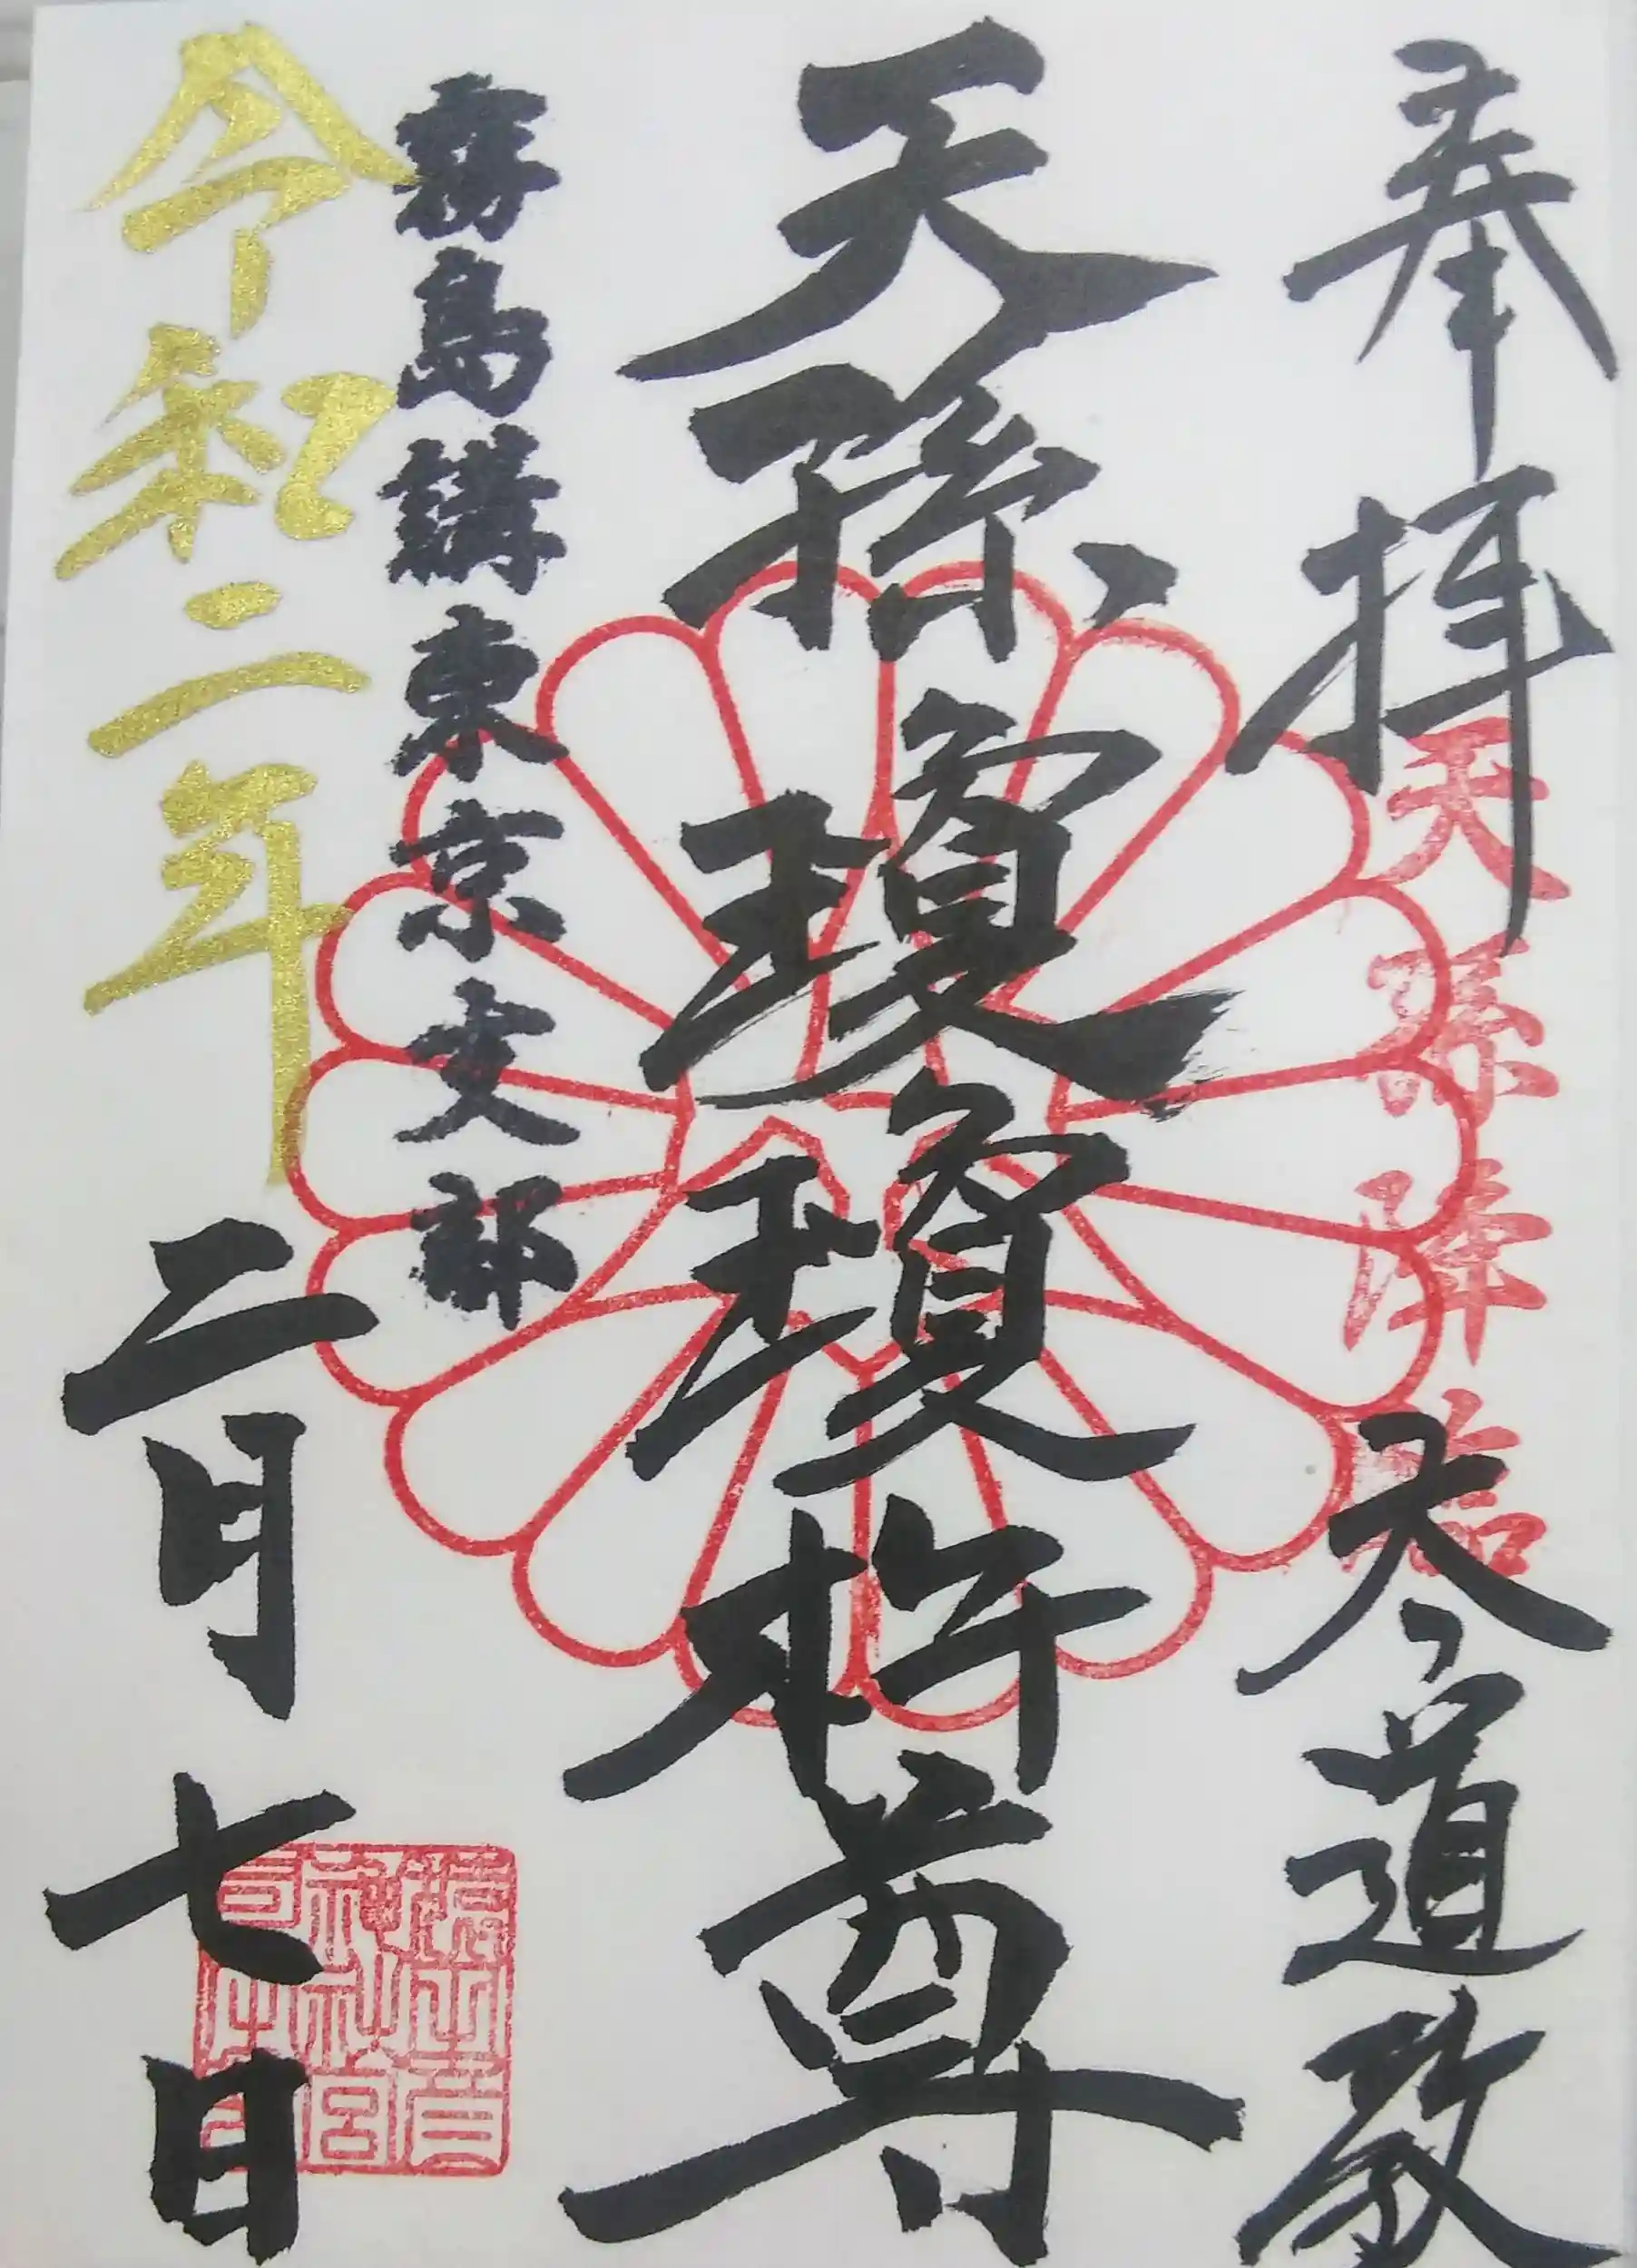 奉拝 天道教
天孫降臨
天孫瓊瓊杵尊
霧島講東京支部
令和二年二月七日